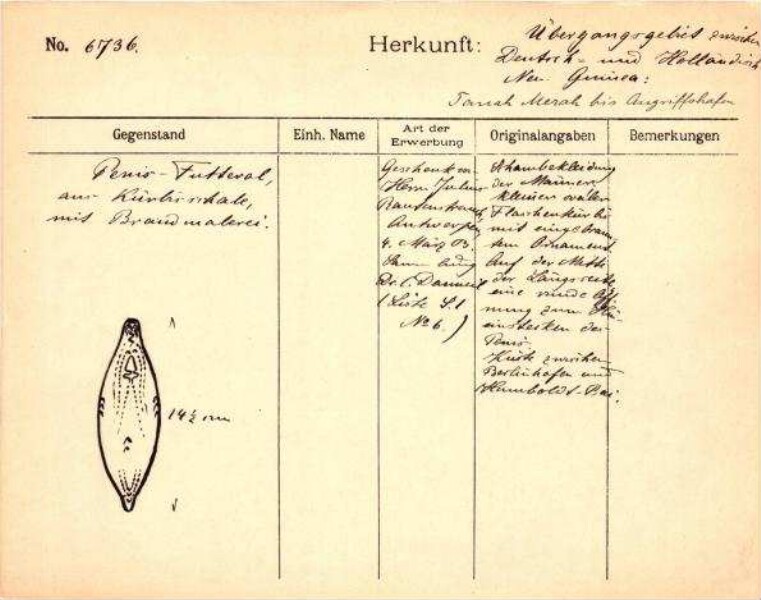 No. 6736.
Herkunft:
Übergangsgebiet zwischen
Deutsch- und Holländisch
Neu Guinea:
Tanah Merah bis Angriffshafen
Gegenstand
Einh. Name
Art der
Erwerbung
Originalangaben
Bemerkungen
Penis-Futteral,
aus Kürbisschale,
mit Brandmalerei.
14½ cm
Geschenk von
Herrn Julius
Rautenstrauch,
Antwerpen,
4. März 03.
Samml
Dr.
(Liste S. 1
No 6.)
Schambekleidung
der Männer
kleiner ovaler
Flaschenkürbis
mit eingebrann
tem Ornament
Auf der Mitte
der Längsseite
eine runde Öff
nung zum
einstecken des
Penis.
Küste zwischen
Berlinhafen und
Humboldt-Bai.